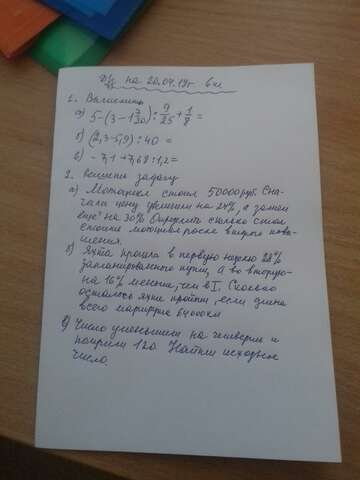 Д/з на 20.04.19г 6 кл
1. Вычислить
а) 5-(3-1 7/20):9/25+1/8=
б) (2,3-5,9):40=
в) -7,1+7,68:1,2=
2. Решить задачу
а) Мотоцикл стоил 50000 руб. Сна-
чала цену увеличили на 24%, а затем
ещё на 30%. Определить сколько стал
стоить мотоцикл после второго повы-
шения.
б) Яхта прошла в первую неделю 28%
запланированного пути, а во вторую
на 16% меньше, чем в I. Сколько
осталось яхте пройти, если длина
всего маршрута 64000 км
в) Число уменьшили на четверть и
получили 120 Найти исходное
число.